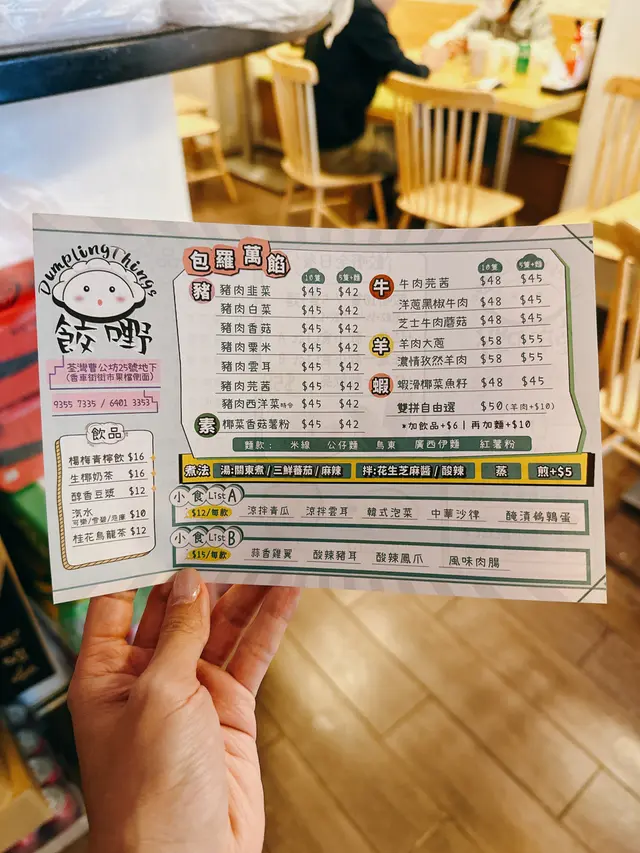 DumplingThings
餃嘢
荃灣曹公坊25號地下
(香車街街市果檔側面)
9355 7335 / 6401 3353
飲品
楊梅青檸飲 $16
生椰奶茶 $16
醇香豆漿 $12
汽水
可樂/雪碧/忌廉 $10
桂花烏龍茶 $12
包羅萬餡
10隻 5隻+麵
豬 豬肉韭菜 $45 $42
豬肉白菜 $45 $42
豬肉香菇 $45 $42
豬肉粟米 $45 $42
豬肉雲耳 $45 $42
豬肉芫茜 $45 $42
豬肉西洋菜時令 $45 $42
素 椰菜香菇粉 $45 $42
10隻 5隻+麵
牛 牛肉芫茜 $48 $45
洋蔥黑椒牛肉 $48 $45
芝士牛肉蘑菇 $48 $45
羊 羊肉大蔥 $58 $55
濃情孜然羊肉 $58 $55
蝦 蝦滑椰菜魚籽 $48 $45
雙拼自由選 $50(羊肉+$10)
*加飲品+$6 | 再加麵+$10
麵款: 米線 公仔麵 烏東 廣西伊麵 紅薯粉
煮法 湯:關東煮/三鮮蕃茄/麻辣 拌:花生芝麻醬/酸辣 蒸 煎+$5
小食List A
$12/每款
涼拌青瓜 涼拌雲耳 韓式泡菜 中華沙律 醃漬鵪鶉蛋
小食List B
$15/每款
蒜香雞翼 酸辣豬耳 酸辣鳳爪 風味肉腸